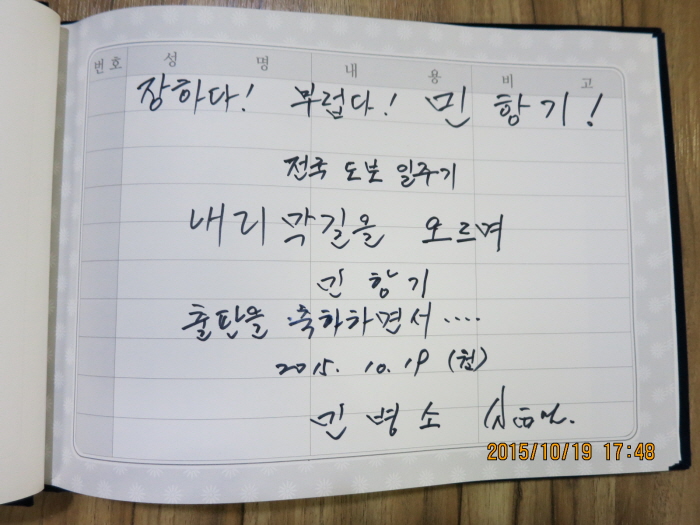 번호 성 명 내 용 비 고
장하다! 부럽다! 민 항 기!
전국 도보 일주기
내리막길을 오르며
민 항 기
출판을 축하하면서 ....
2015. 10. 19 (월)
민 병 소
2015/10/19 17:48